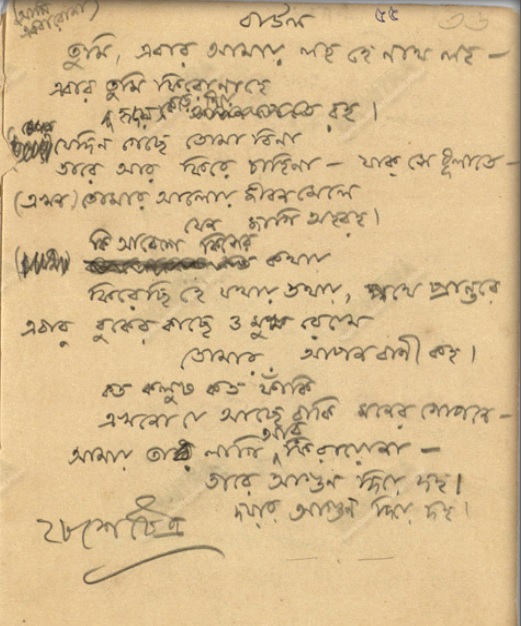 (আমি
এবারোনা)
বাউল ৫৫ ৩৩
তুমি, এবার আমায় লহ হে নাথ লহ –
এবার তুমি ফিরোনাহে
হৃদয় কেড়ে নিয়ে রহ।
যেদিন গেছে তোমা বিনা
তারে আর ফিরে চাহিনা – যাক সে ধুলাতে –
(এখন) তোমার আলোয় জীবন মেলে
যেন জাগি অহরহ।
কি আবেশে কিসের
কথায়
ফিরেছি হে যথায় তথায়, পথে প্রান্তরে
এবার বুকের কাছে ও মুখ রেখে
তোমার আপন বাণী কহ।
কত কলুষ কত ফাঁকি
এখনো যে আছে বাকি মনের গোপনে –
আমায় তার লাগি আর ফিরায়োনা –
তারে আগুন দিয়ে দহ।
দয়ার আগুন দিয়ে দহ।
২৮শে চৈত্র